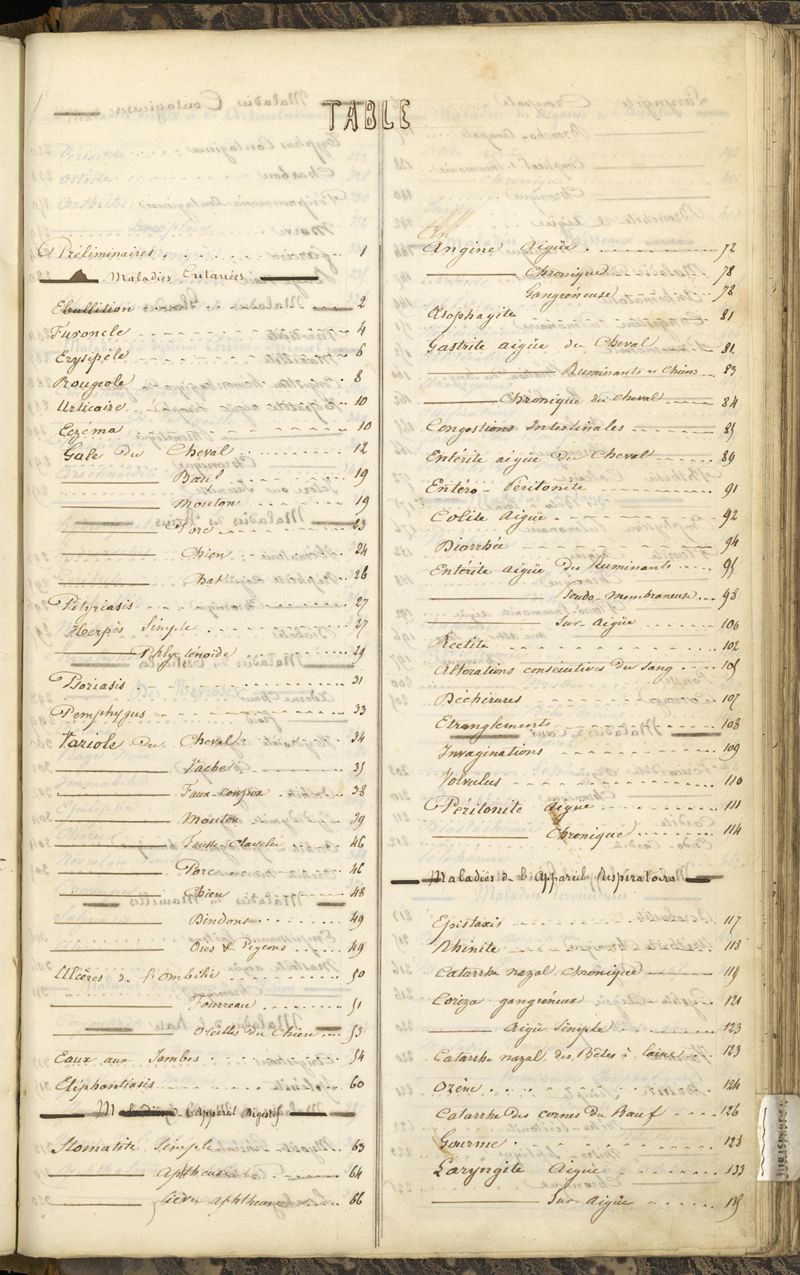 TABLE
Préliminaires 1
Maladies Cutanées
Ebullition 2
Furoncle 4
Erysipèle 6
Rougeole 8
Urticaire 10
Eczéma 10
Gale du Cheval 12
Bœuf 19
Mouton 19
Porc 23
Chien 24
Chat 26
Pityriasis 27
Herpès Simple 27
Phlyctenoïde 29
Psoriasis 31
Pemphygus 33
Variole du Cheval 34
Vache 35
Faux-cowpox 38
Mouton 39
Fausse-Clavelée 46
Porc 46
Chien 48
Dindons 49
Oies & Pigeons 49
Ulcères de l'ombilic 50
Fourreau 51
Oreilles du Chien 53
Eaux aux Jambes 54
Eléphantiasis 60
Maladies de l'Appareil Digestif
Stomatite Simple 63
Aphtheuse 64
Fièvre Aphtheuse 66
Angine Aigüe 72
Chronique 78
Gangréneuse 78
Œsophagite 81
Gastrite aigüe du Cheval 81
Ruminants et Chien 83
Chronique du Cheval 84
Congestions Intestinales 85
Entérite aigüe du Cheval 89
Entéro-Péritonite 91
Colite Aigüe 92
Diarrhée 94
Entérite Aigüe des Ruminants 95
Pseudo-Membraneuse 98
Sur-Aigüe 100
Rectite 102
Altérations consécutives du sang 105
Déchirures 107
Etranglements 108
Invaginations 109
Volvulus 110
Péritonite Aigüe 111
Chronique 114
Maladies de l'Appareil Respiratoire
Epistaxis 117
Rhinite 118
Catarrhe nazal Chronique 119
Coriza gangréneux 121
Aigü Simple 123
Catarrhe nazal des Bêtes à laine 123
Ozène 124
Catarrhe des cornes du Bœuf 126
Gourme 128
Laryngite Aigüe 133
Sur-Aigüe 135